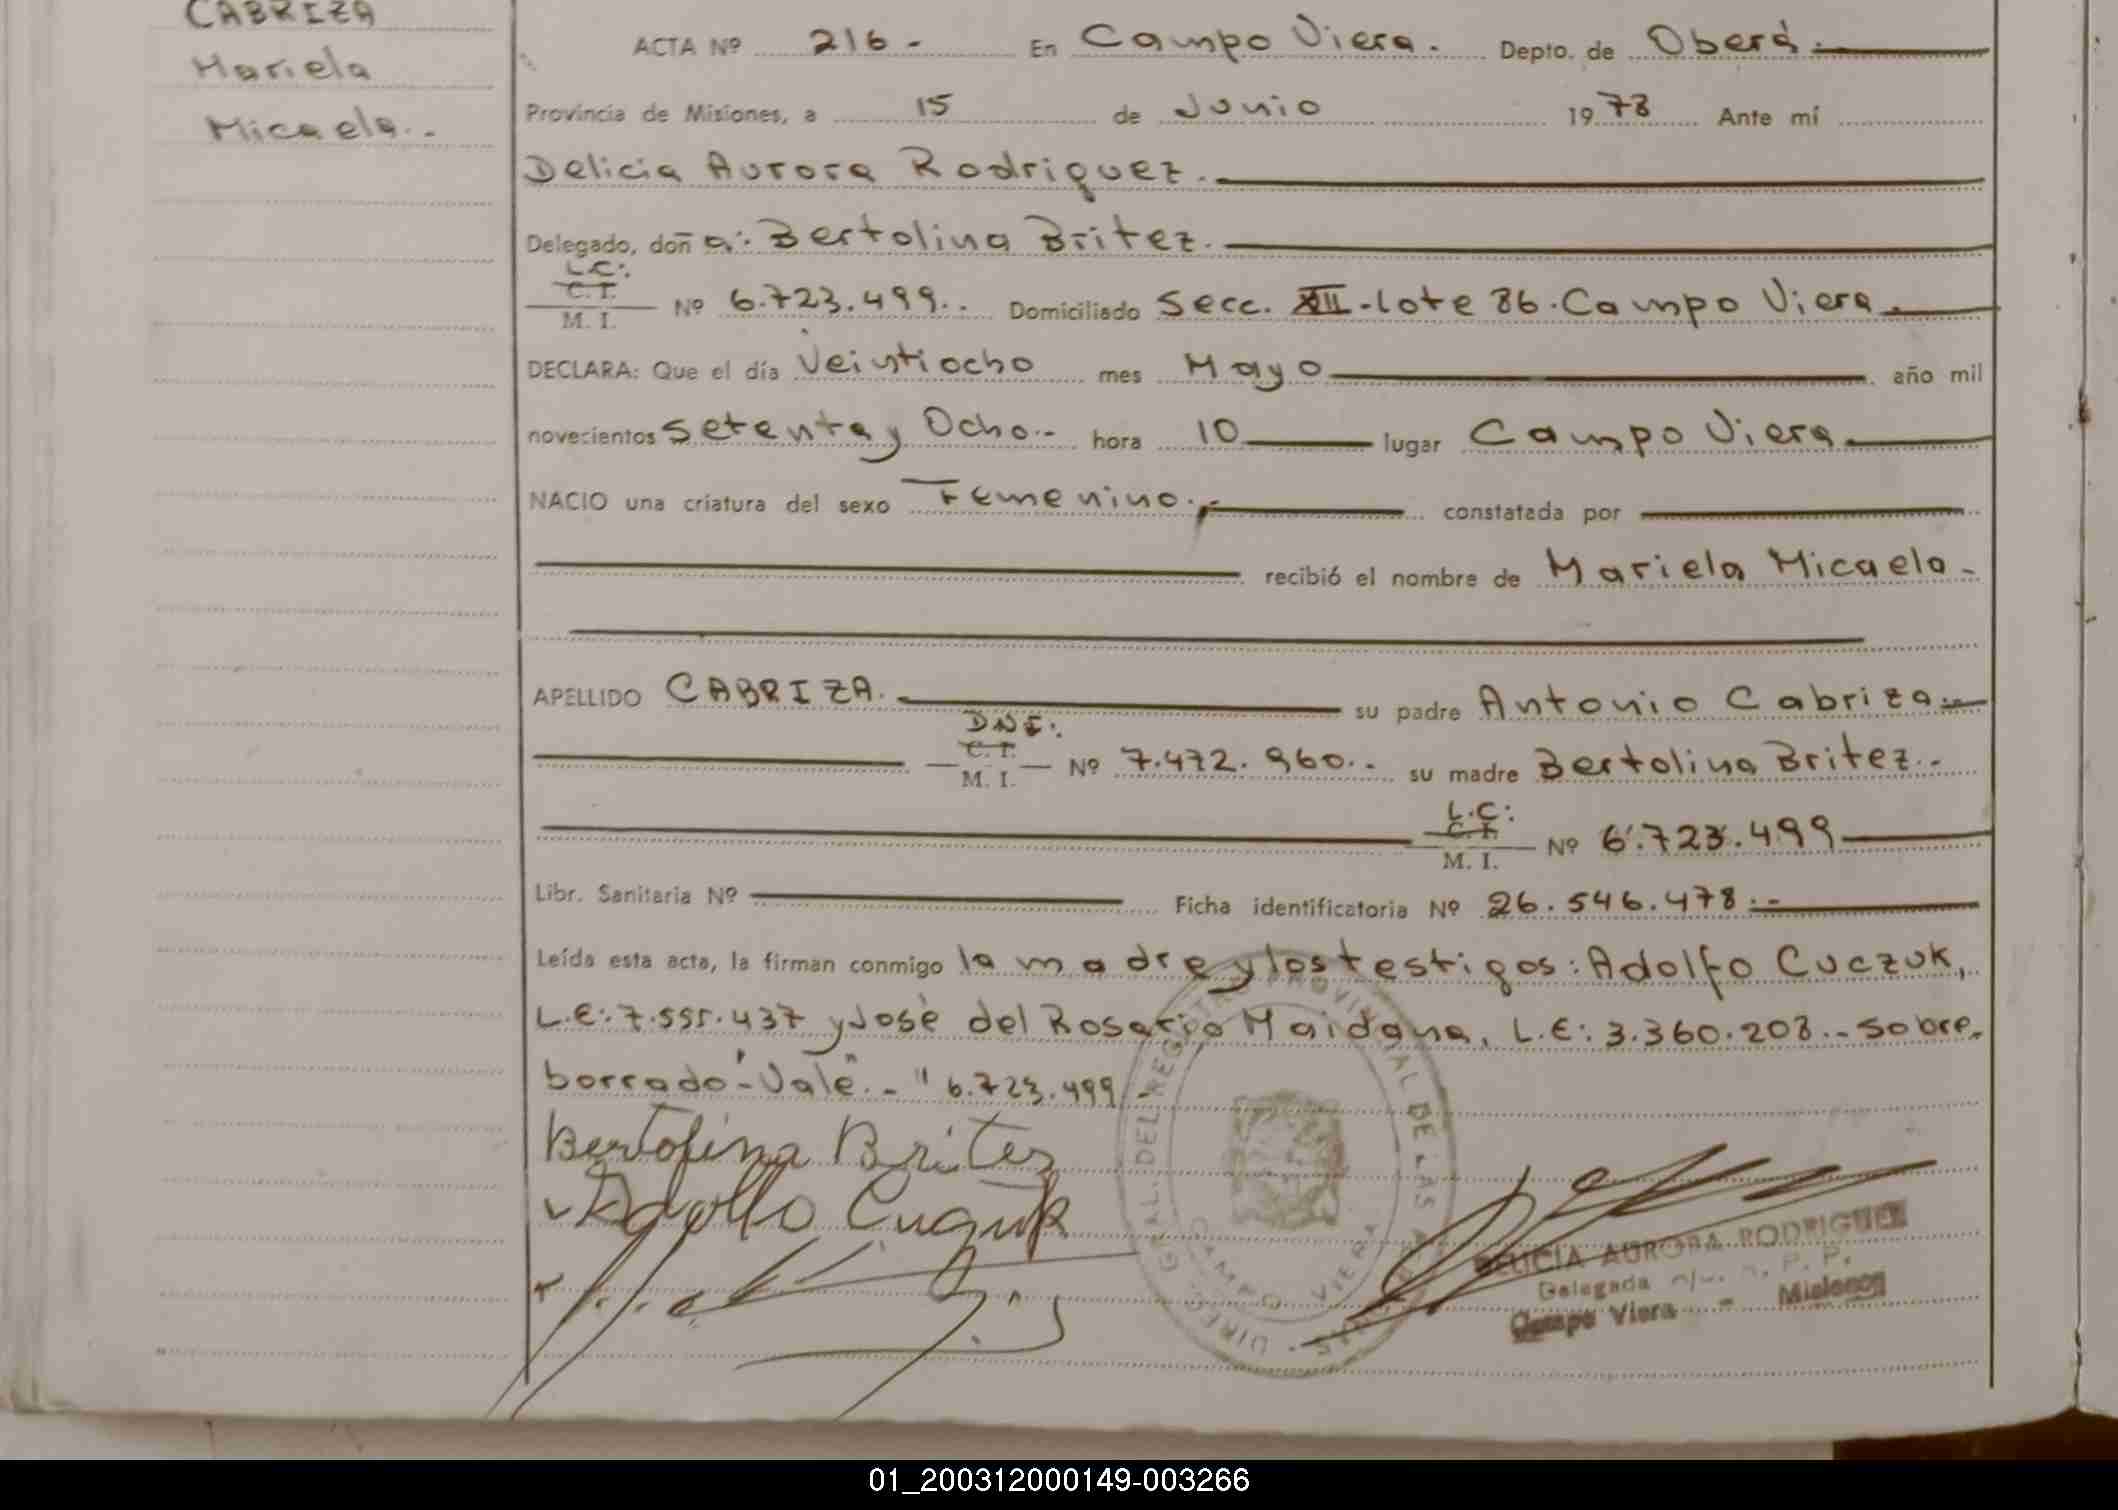 CABRIZA
Mariela
Micaela..
ACTA Nº 216 - En Campo Viera. Depto. de Oberá.
Provincia de Misiones, a 15 de Junio 1978 Ante mí
Delicia Aurora Rodriguez.
Delegado, doña: Bertolina Britez.
L.C:
C. I.
M. I. Nº 6.723.499.. Domiciliado Secc. XII-lote 86.Campo Viera.
DECLARA: Que el día Veintiocho mes Mayo año mil
novecientos Setenta y Ocho.- hora 10 lugar Campo Viera
NACIO una criatura del sexo Femenino.- constatada por
recibió el nombre de Mariela Micaela-
APELLIDO CABRIZA. su padre Antonio Cabriza.-
DNI:
C. I.
M. I. Nº 7.472.960.. su madre Bertolina Britez.-
L.C:
C. I.
M. I. Nº 6.723.499
Libr. Sanitaria Nº Ficha identificatoria Nº 26.546.478.-
Leída esta acta, la firman conmigo la madre y los testigos: Adolfo Cuczuk,
L.E:7.551.437 y José del Rosario Maidana, L.E: 3.360.208.- Sobre
borrado "Vale".- "6.723.499.-
Bertolina Britez
Adolfo Cuczuk
DIREC. GRAL. DEL REGISTRO PROVINCIAL DE LAS PERSONAS
CAMPO VIERA
DELICIA AURORA RODRIGUEZ
Delegada R. P. P.
Campo Viera - Misiones
01_200312000149-003266